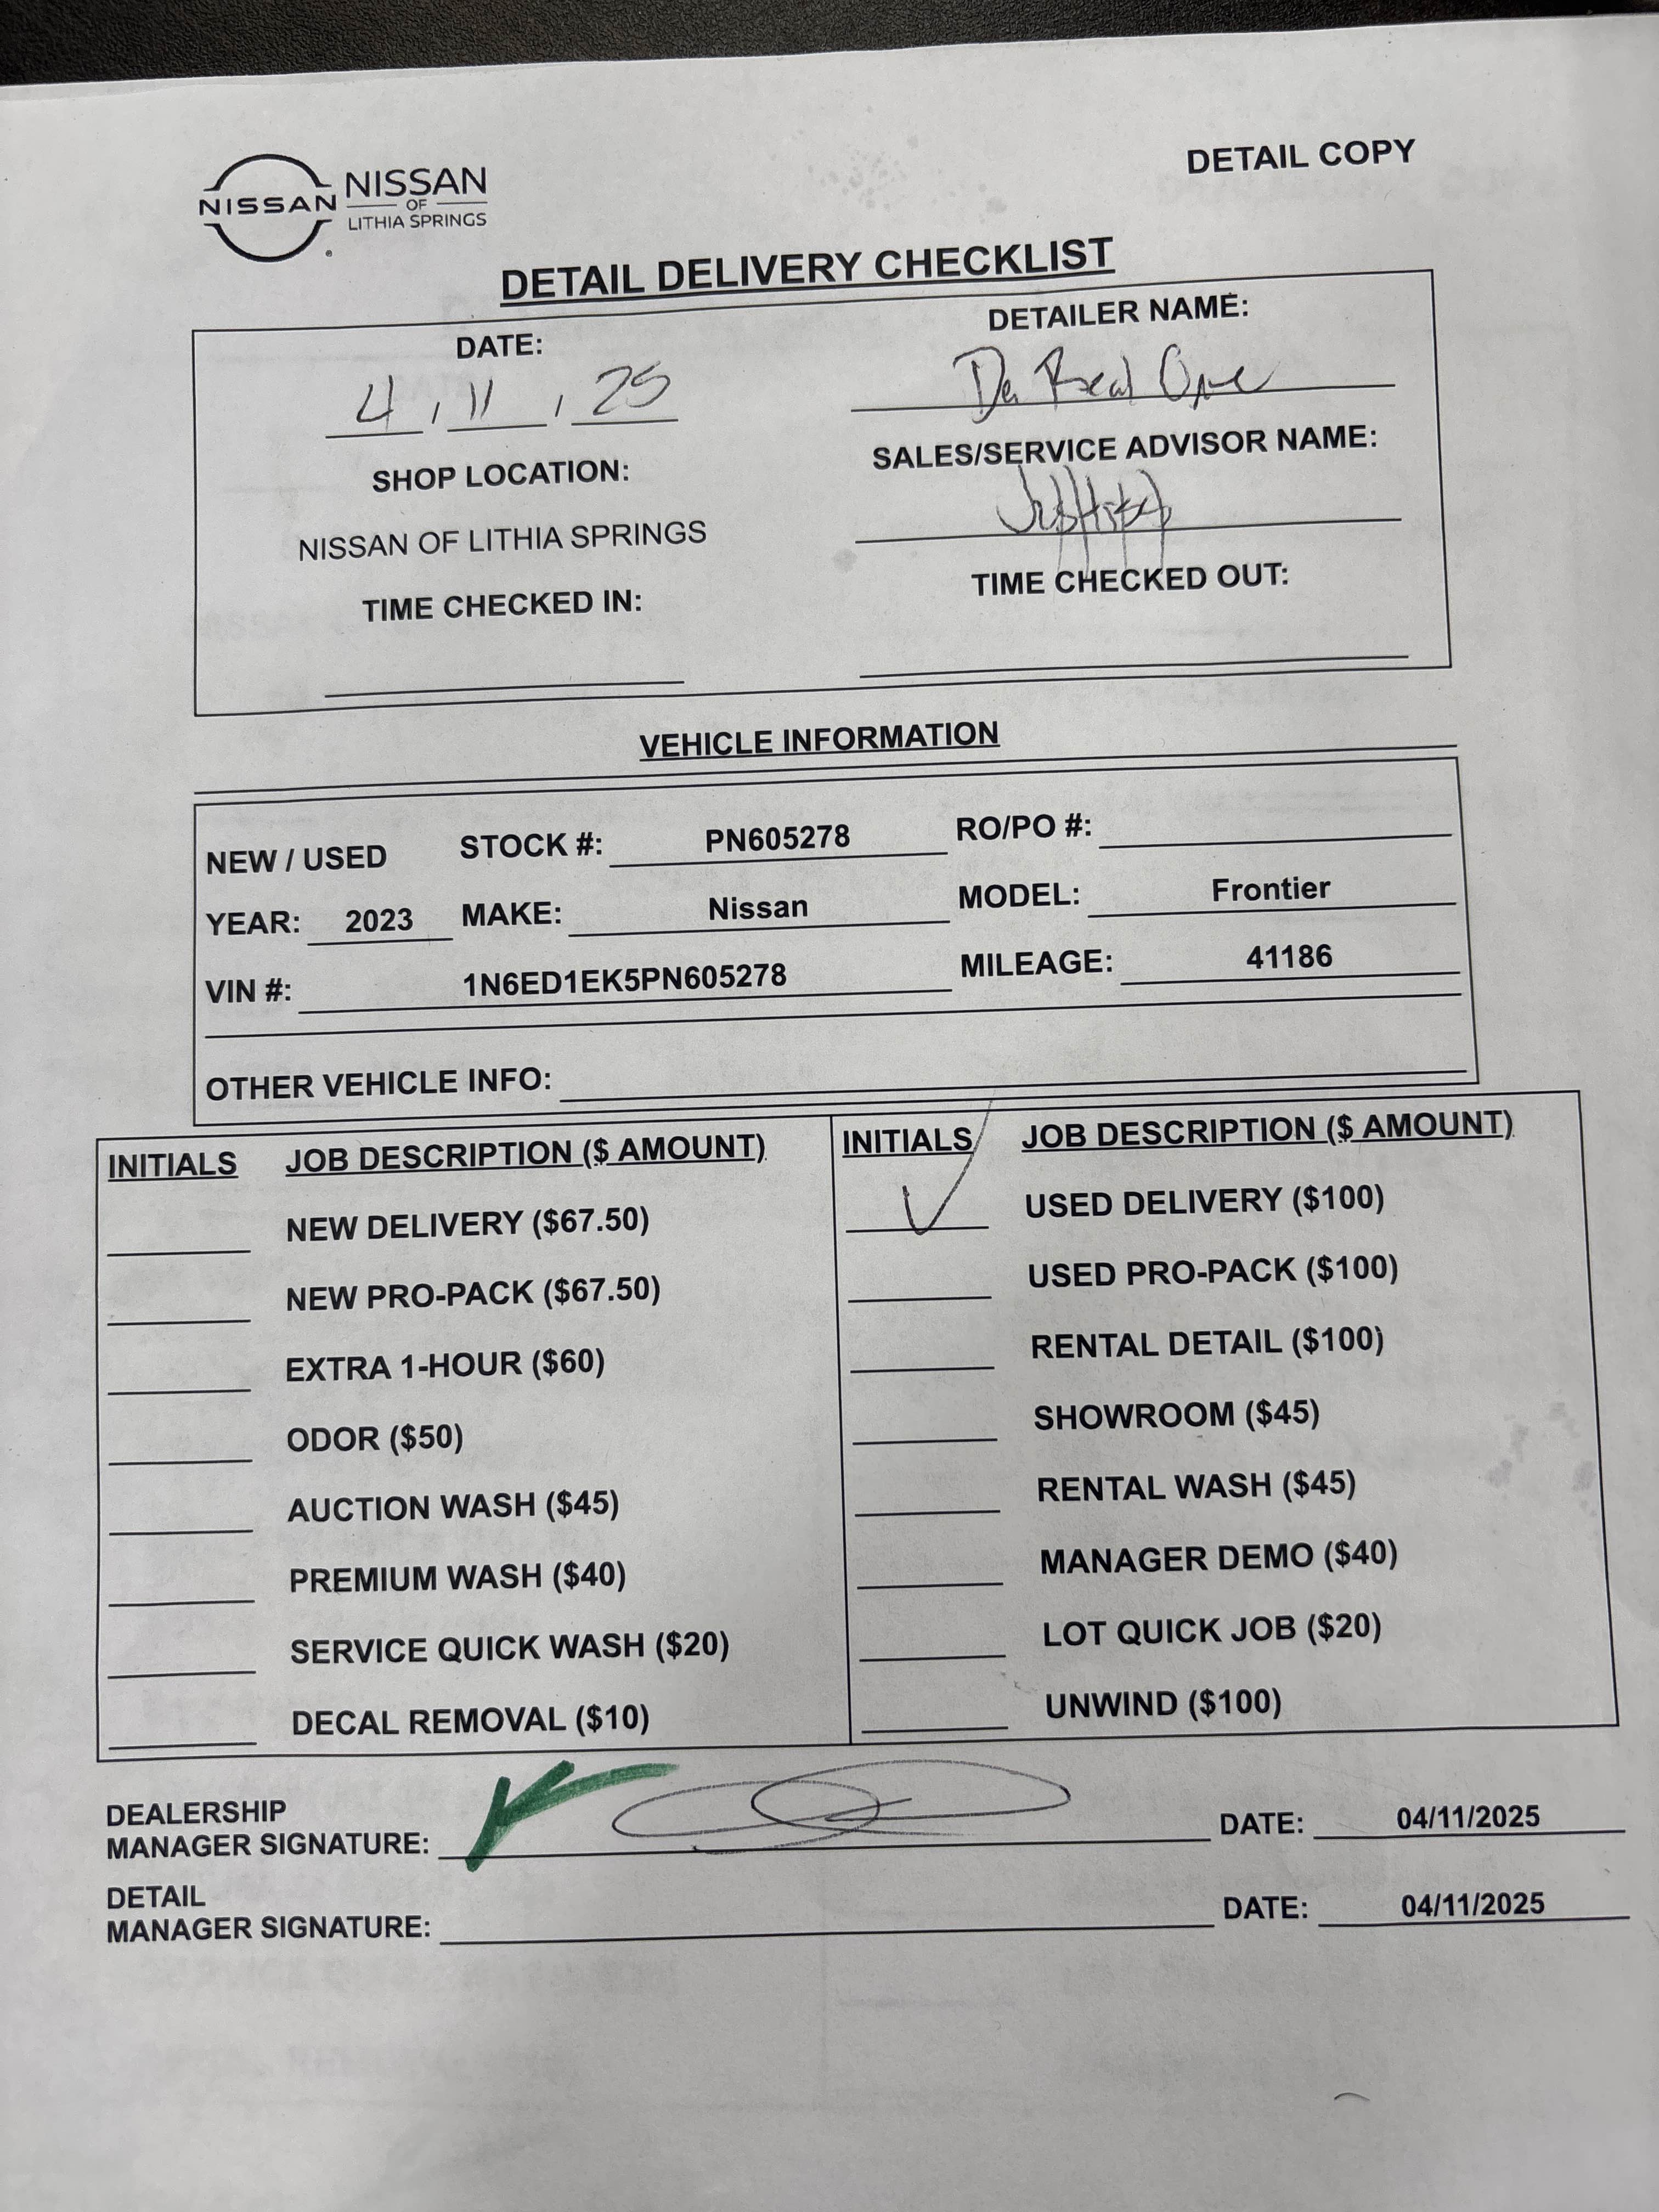 DETAIL COPY
NISSAN
NISSAN
OF
LITHIA SPRINGS
DETAIL DELIVERY CHECKLIST
DATE:
4 , 11 , 25
DETAILER NAME:
Da Real One
SHOP LOCATION:
NISSAN OF LITHIA SPRINGS
SALES/SERVICE ADVISOR NAME:
TIME CHECKED IN:
TIME CHECKED OUT:
VEHICLE INFORMATION
NEW / USED STOCK #: PN605278 RO/PO #:
YEAR: 2023 MAKE: Nissan MODEL: Frontier
VIN #: 1N6ED1EK5PN605278 MILEAGE: 41186
OTHER VEHICLE INFO:
INITIALS JOB DESCRIPTION ($ AMOUNT)
NEW DELIVERY ($67.50)
NEW PRO-PACK ($67.50)
EXTRA 1-HOUR ($60)
ODOR ($50)
AUCTION WASH ($45)
PREMIUM WASH ($40)
SERVICE QUICK WASH ($20)
DECAL REMOVAL ($10)
INITIALS JOB DESCRIPTION ($ AMOUNT)
USED DELIVERY ($100)
USED PRO-PACK ($100)
RENTAL DETAIL ($100)
SHOWROOM ($45)
RENTAL WASH ($45)
MANAGER DEMO ($40)
LOT QUICK JOB ($20)
UNWIND ($100)
DEALERSHIP
MANAGER SIGNATURE: DATE: 04/11/2025
DETAIL
MANAGER SIGNATURE: DATE: 04/11/2025